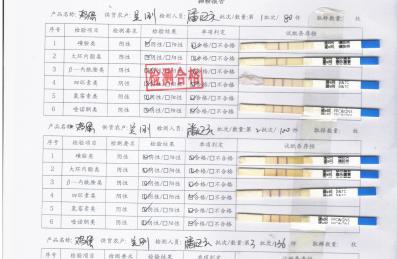 检验报告
产品名称: 鸡蛋 供货农户: 吴刚 检测人员: 潘 批次/数量:第 1 批次/ 80 件 取样数量: 枚
序号 检验项目 检测要求 检验结果 单项判定 试纸条存档
1 磺胺类 阴性 ☑阴性/□阳性 ☑合格/□不合格
2 大环内酯类 阴性 ☑阴性/□阳性 ☑合格/□不合格
3 β—内酰胺类 阴性 ☑阴性/□阳性 ☑合格/□不合格
4 四环素类 阴性 合格/□不合格
5 氯霉素类 阴性 合格/□不合格
6 喹诺酮类 阴性 ☑阴性/□阳性 ☑合格/□不合格
检测合格
产品名称: 鸡蛋 供货农户: 吴刚 检测人员: 潘 批次/数量:第 2 批次/ 100 件 取样数量: 枚
序号 检验项目 检测要求 检验结果 单项判定 试纸条存档
1 磺胺类 阴性 ☑阴性/□阳性 ☑合格/□不合格
2 大环内酯类 阴性 ☑阴性/□阳性 ☑合格/□不合格
3 β—内酰胺类 阴性 ☑阴性/□阳性 ☑合格/□不合格
4 四环素类 阴性 ☑阴性/□阳性 ☑合格/□不合格
5 氯霉素类 阴性 ☑阴性/□阳性 ☑合格/□不合格
6 喹诺酮类 阴性 ☑阴性/□阳性 ☑合格/□不合格
产品名称: 鸡蛋 供货农户: 吴刚 检测人员: 潘 批次/数量:第 3 批次/ 136 件 取样数量: 枚
序号 检验项目 检测要求 检验结果 单项判定 试纸条存档